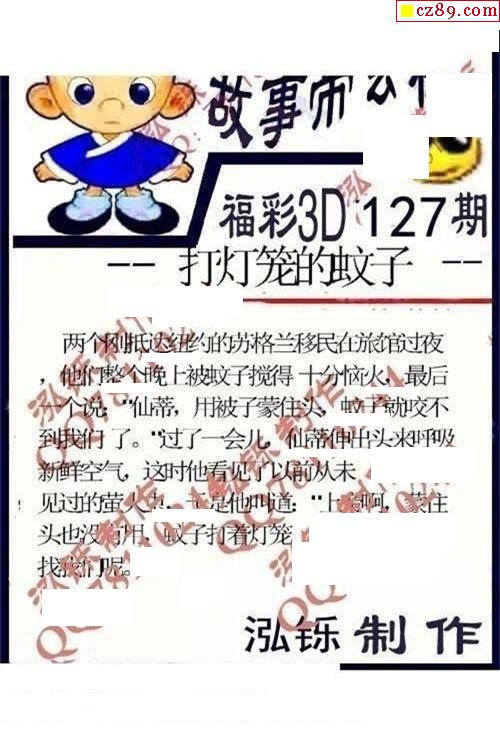 cz89.com
故事
福彩3D 127期
-- 打灯笼的蚊子 --
两个刚抵达纽约的苏格兰移民在旅馆过夜
，他们整个晚上被蚊子搅得十分恼火，最后
一个说："仙蒂，用被子蒙住头，蚊子就咬不
到我们了。"过了一会儿，仙蒂伸出头来呼吸
新鲜空气，这时他看见了以前从未
见过的萤火 是他叫道："上帝啊，蒙住
头也没有用，蚊子打着灯笼
找我们呢。
泓铄制作